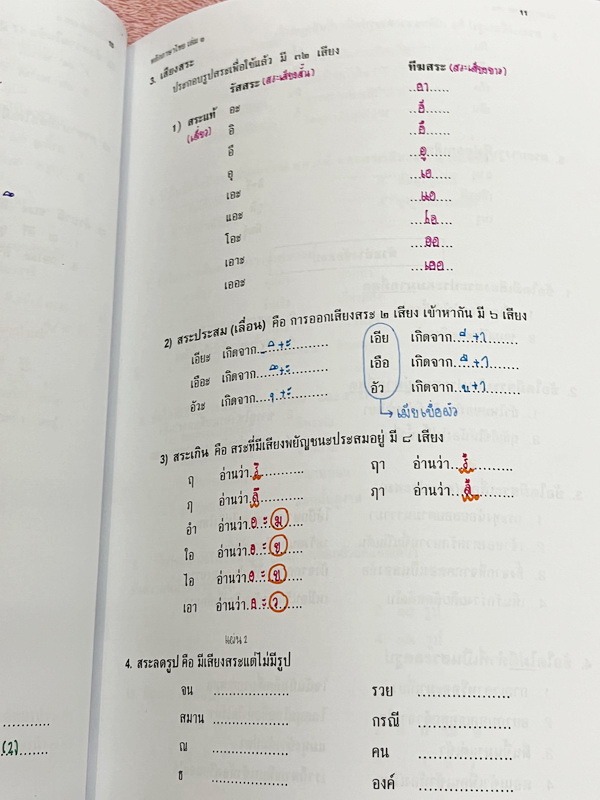 ๑๑
หลักภาษาไทย เล่ม ๑
3. เสียงสระ
ประกอบรูปสระเพื่อใช้แล้ว มี ๓๒ เสียง
รัสสระ (สระเสียงสั้น) ทีฆสระ (สระเสียงยาว)
1) สระแท้ อะ ..อา......
(เดี่ยว) อิ ..อี......
อึ ..อื......
อุ ..อู......
เอะ ..เอ......
แอะ ..แอ......
โอะ ..โอ......
เอาะ ..ออ......
เออะ ..เออ......
2) สระประสม (เลื่อน) คือ การออกเสียงสระ ๒ เสียง เข้าหากัน มี ๖ เสียง
เอียะ เกิดจาก เอีย เกิดจาก
เอือะ เกิดจาก เอือ เกิดจาก
อัวะ เกิดจาก อัว เกิดจาก
→ เมียเบื่อผัว
3) สระเกิน คือ สระที่มีเสียงพยัญชนะประสมอยู่ มี ๘ เสียง
ฤ อ่านว่า..รึ.......... ฤๅ อ่านว่า...รือ..........
ฦ อ่านว่า..ลึ.......... ฦๅ อ่านว่า...ลือ..........
อำ อ่านว่า..อะม......
ใอ อ่านว่า..อะย......
ไอ อ่านว่า..อะย......
เอา อ่านว่า..อะว......
แผ่น 2
4. สระลดรูป คือ มีเสียงสระแต่ไม่มีรูป
จน .................... รวย ....................
สมาน .................... กรณี ....................
ณ .................... คน ....................
ธ .................... องค์ ....................
(2)